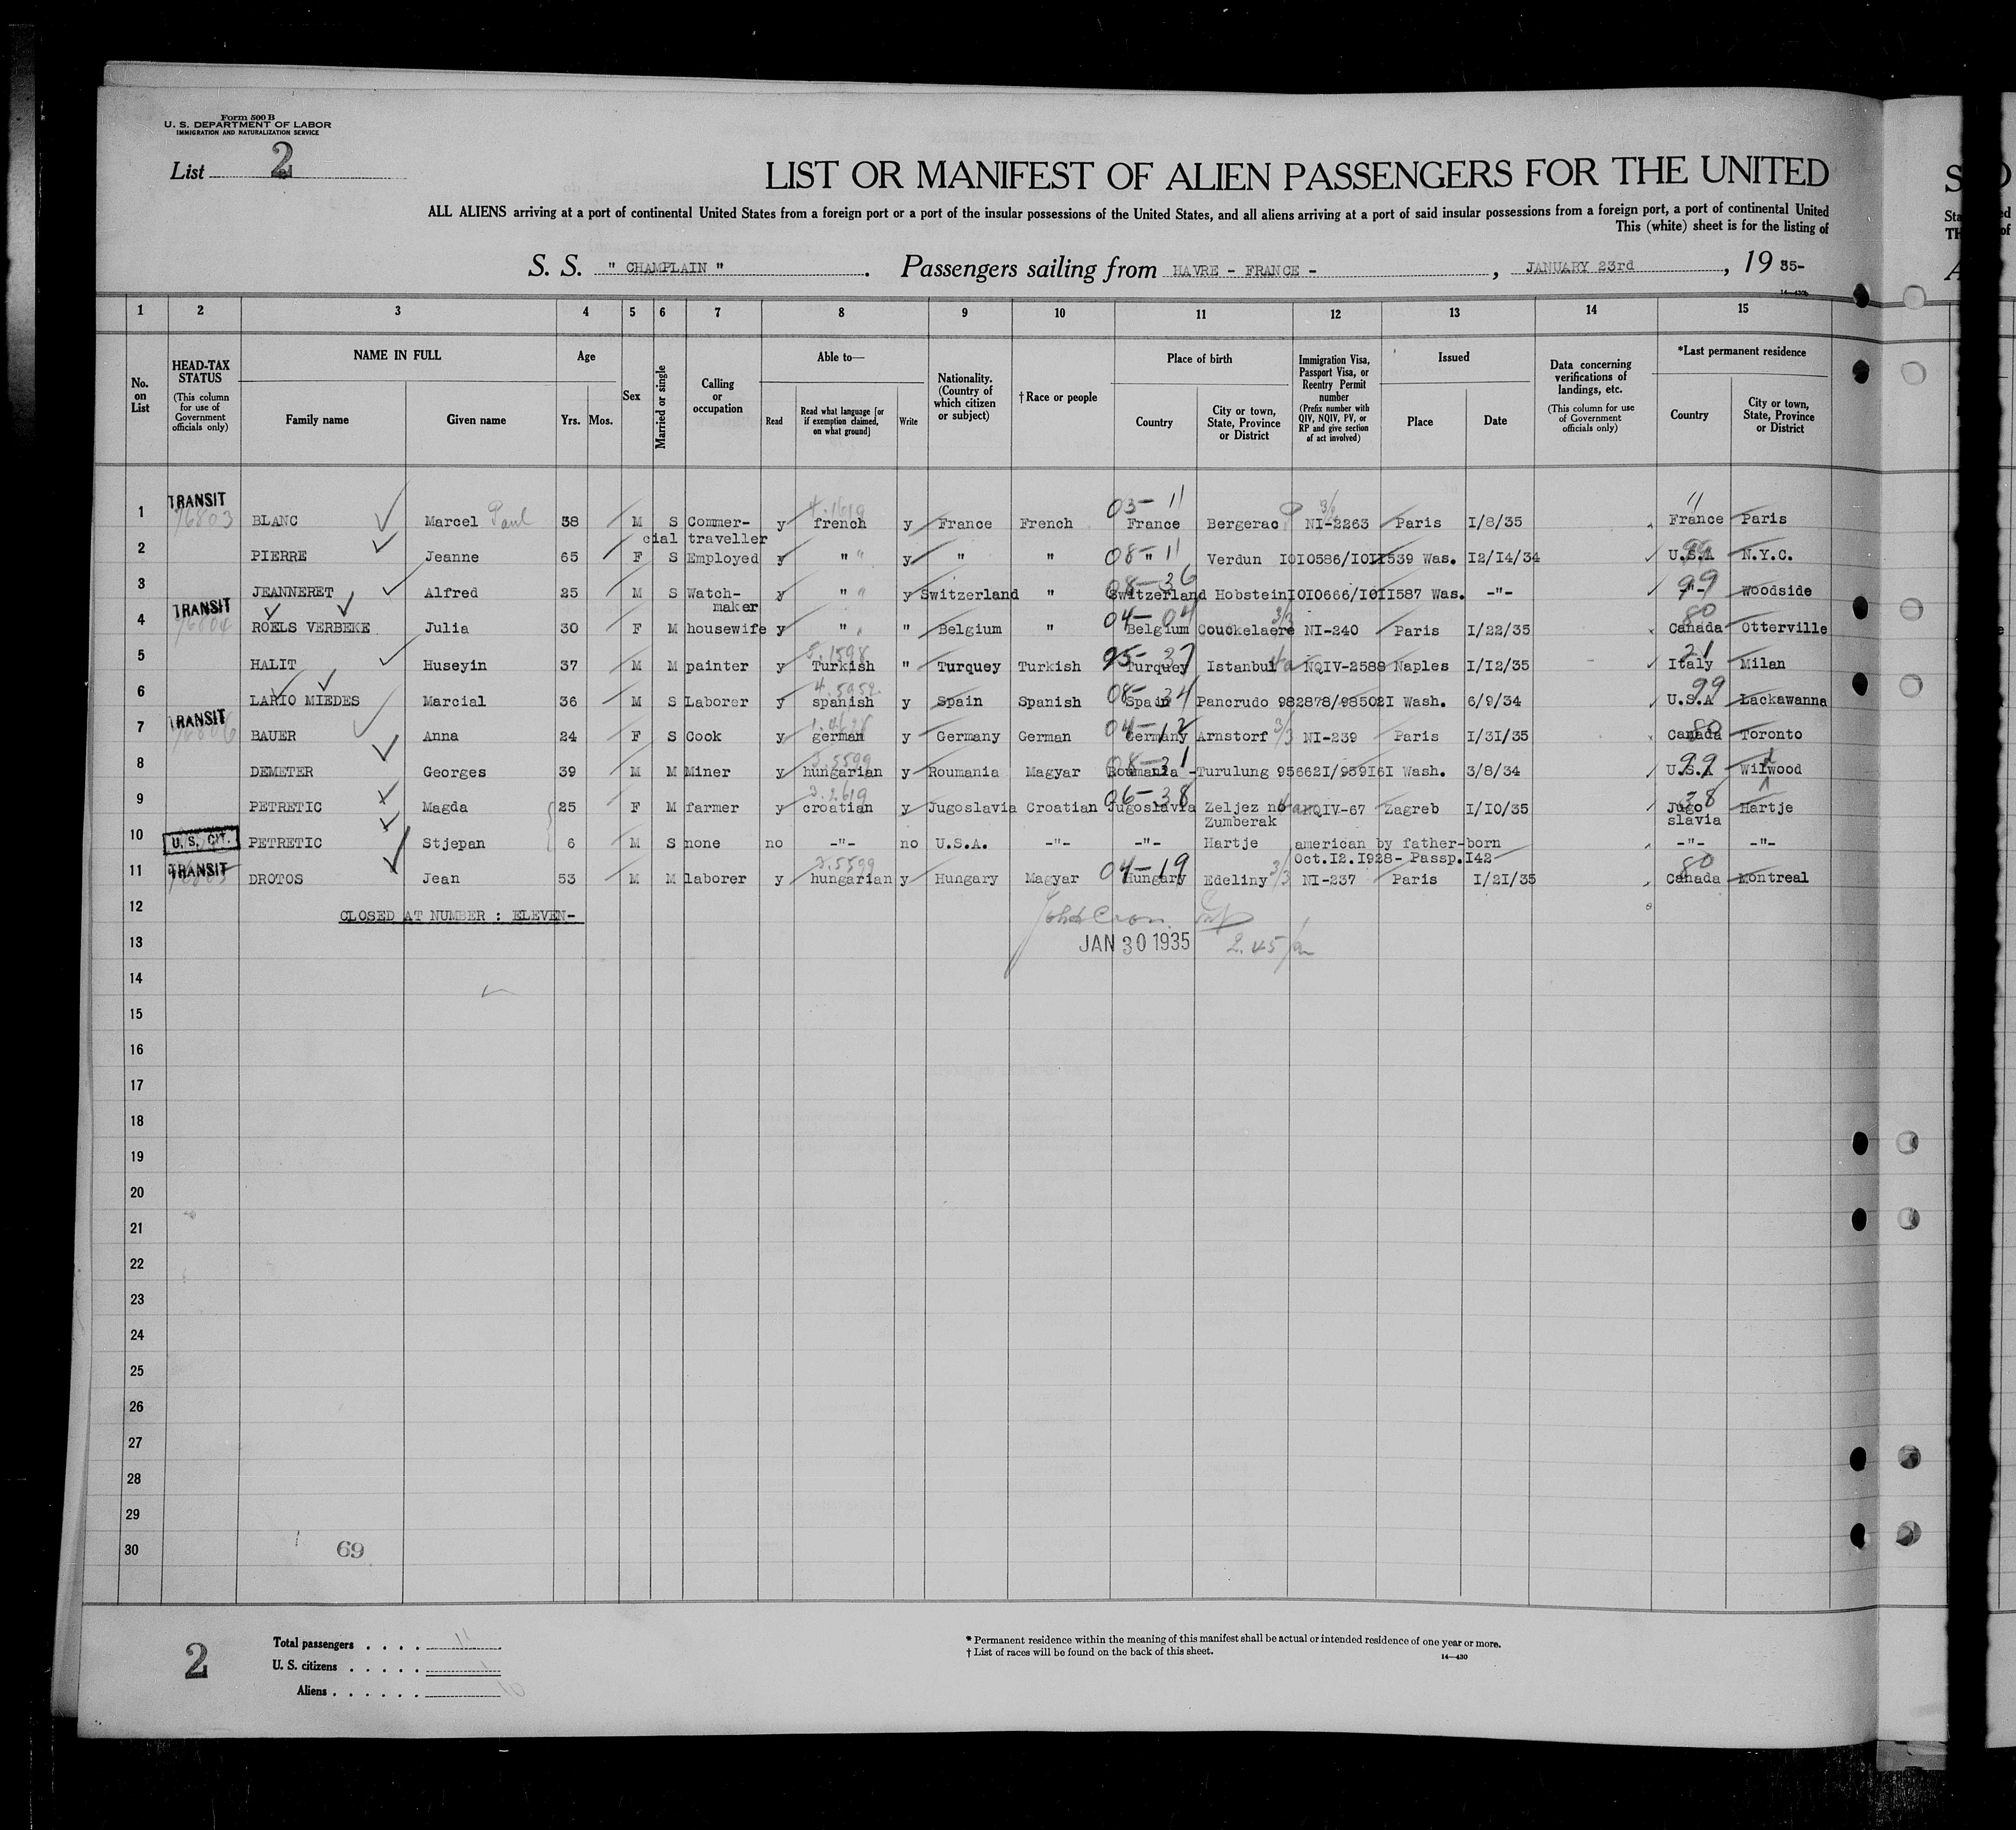 Form 500 B
U. S. DEPARTMENT OF LABOR
IMMIGRATION AND NATURALIZATION SERVICE
List 2
LIST OR MANIFEST OF ALIEN PASSENGERS FOR THE UNITED
ALL ALIENS arriving at a port of continental United States from a foreign port or a port of the insular possessions of the United States, and all aliens arriving at a port of said insular possessions from a foreign port, a port of continental United
This (white) sheet is for the listing of
S. S. " CHAMPLAIN " . Passengers sailing from HAVRE - FRANCE - , JANUARY 23rd , 19 35-
1 2 3 4 5 6 7 8 9 10 11 12 13 14 15
No. on List
HEAD-TAX STATUS (This column for use of Government officials only)
NAME IN FULL Family name Given name
Age Yrs. Mos.
Sex
Married or single
Calling or occupation
Able to— Read Read what language [or if exemption claimed, on what ground] Write
Nationality. (Country of which citizen or subject)
† Race or people
Place of birth Country City or town, State, Province or District
Immigration Visa, Passport Visa, or Reentry Permit number (Prefix number with QIV, NQIV, PV, or RP and give section of act involved)
Issued Place Date
Data concerning verifications of landings, etc. (This column for use of Government officials only)
*Last permanent residence Country City or town, State, Province or District
1 TRANSIT 76803 BLANC Marcel Paul 38 M S Commer- y french y France French 03- 11 France Bergerac NI-2263 Paris I/8/35 France Paris
cial traveller
2 PIERRE Jeanne 65 F S Employed y " " y " " 08- 11 " Verdun IOIO586/IOII539 Was. I2/I4/34 U.S.A 99 N.Y.C.
3 JEANNERET Alfred 25 M S Watch- y " " y Switzerland " 08-36 Switzerland Hobstein IOIO666/IOII587 Was. -"- 99 -"- Woodside
maker
4 TRANSIT ROELS VERBEKE Julia 30 F M housewife y " " Belgium " 04-04 Belgium Couckelaere 3/3 NI-240 Paris I/22/35 80 Canada Otterville
5 HALIT Huseyin 37 M M painter y Turkish " Turquey Turkish 37 Turquey Istanbul NQIV-2588 Naples I/I2/35 21 Italy Milan
6 LARIO MIEDES Marcial 36 M S Laborer y spanish y Spain Spanish 08-34 Spain Pancrudo 982878/98502I Wash. 6/9/34 99 U.S.A Lackawanna
7 TRANSIT BAUER Anna 24 F S Cook y german y Germany German 04-12 Germany Arnstorf 3/3 NI-239 Paris I/3I/35 80 Canada Toronto
8 DEMETER Georges 39 M M Miner y 3.5599 hungarian y Roumania Magyar 08-31 Roumania -Turulung 95662I/959I6I Wash. 3/8/34 99 U.S.A Wilwood
9 PETRETIC Magda 25 F M farmer y 3.2619 croatian y Jugoslavia Croatian 06-38 Jugoslavia Zeljez no NQIV-67 Zagreb I/IO/35 38 Jugo Hartje
Zumberak slavia
10 U. S. CIT. PETRETIC Stjepan 6 M S none no -"- no U.S.A. -"- -"- Hartje american by father-born -"- -"-
Oct.I2.I928- Passp.I42-
11 TRANSIT DROTOS Jean 53 M M laborer y 3.5599 hungarian y Hungary Magyar 04-19 Hungary Edeliny 3/3 NI-237 Paris I/2I/35 80 Canada Montreal
12 CLOSED AT NUMBER : ELEVEN-
13 JAN 30 1935 2.45
14
15
16
17
18
19
20
21
22
23
24
25
26
27
28
29
30
69
2
Total passengers . . . . 11
U. S. citizens . . . . . 1
Aliens . . . . . . 10
* Permanent residence within the meaning of this manifest shall be actual or intended residence of one year or more.
† List of races will be found on the back of this sheet.
14—430